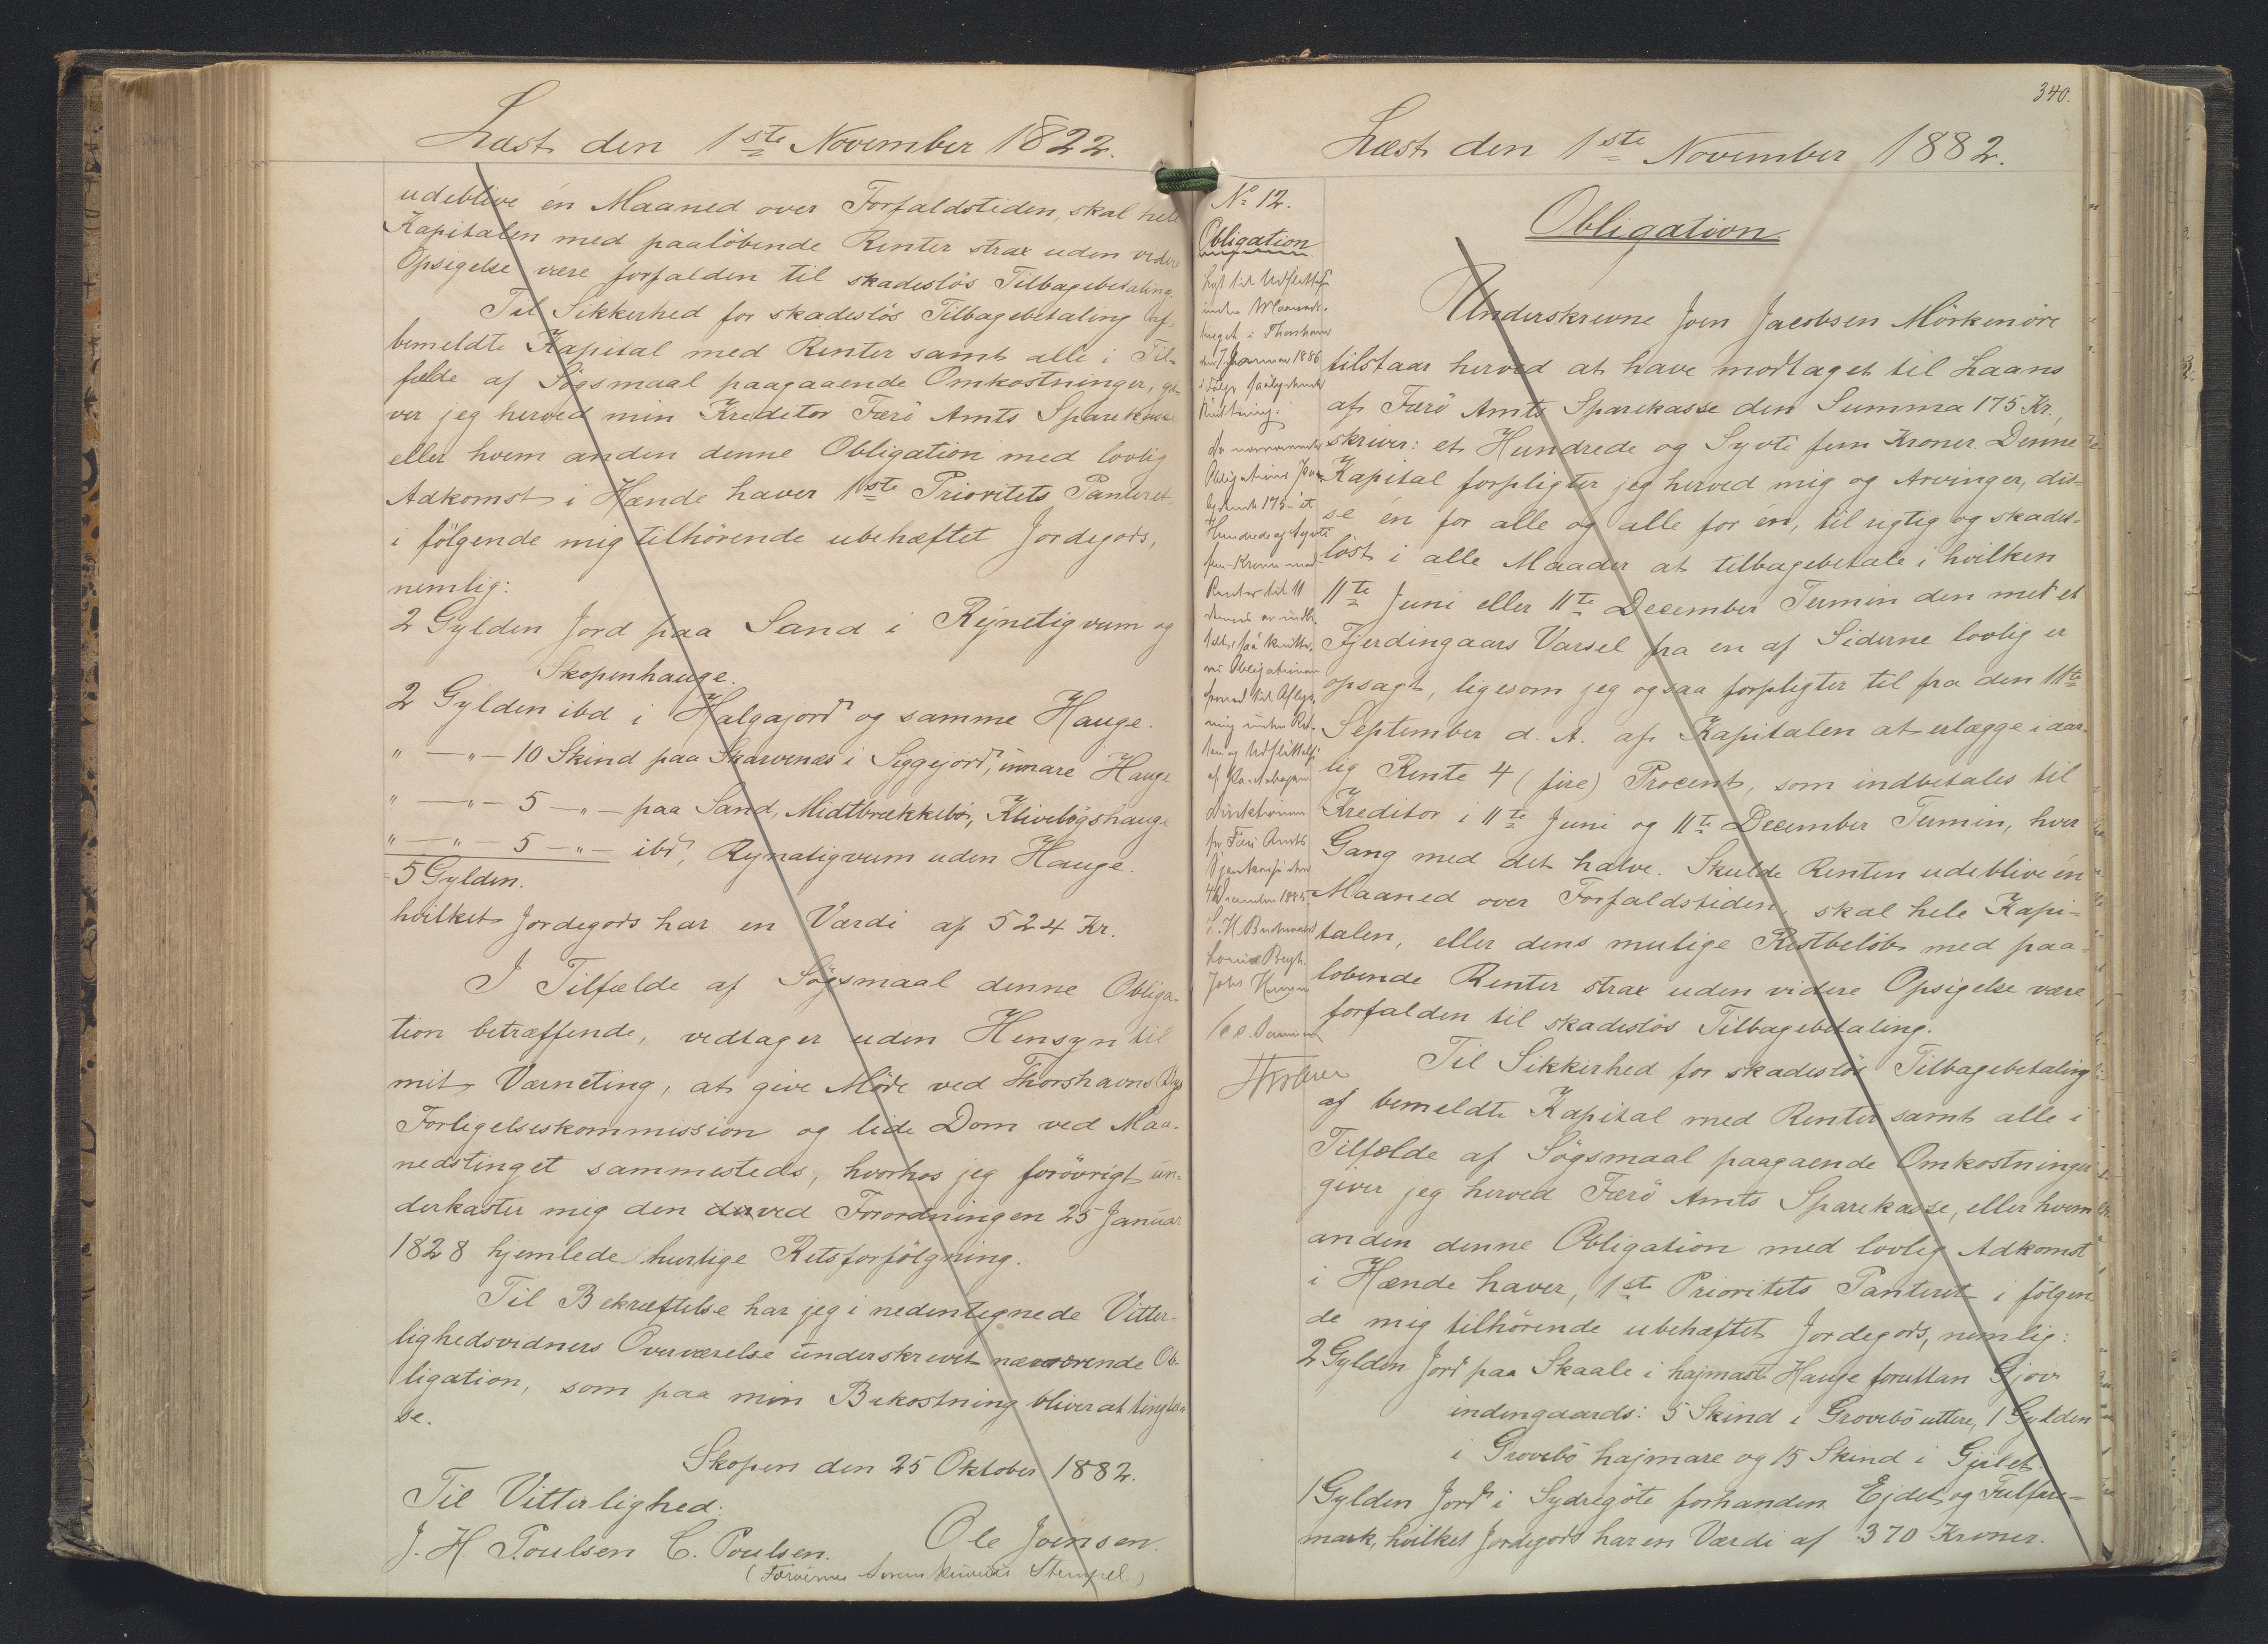 Læst den 1ste November 1822.
udeblive én Maaned over Forfaldstiden, skal hele
Kapitalen med paaløbende Renter strax uden videre
Opsigelse være forfalden til skadesløs Tilbagebetaling.
Til Sikkerhed for skadesløs Tilbagebetaling af
bemeldte Kapital med Renter samt alle i Til-
fælde af Søgsmaal paagaaende Omkostninger, gi-
ver jeg herved min Kreditor Færö Amts Sparekasse
eller hvem anden denne Obligation med lovlig
Adkomst i Hænde haver 1ste Prioritets Panteret
i følgende mig tilhørende ubehæftet Jordegods,
nemlig:
2 Gylden Jord paa Sand i Rynetigvum og
Skopenhauge.
2 Gylden ibd i Halgajord og samme Hauge.
" — " — 10 Skind paa Skarvenæs i Siggejord, innare Hauge
" — " — 5 — " — paa Sand, Midtbrækkebø, Kliveløgshauge
" — " — 5 — " — ibd, Rynatigvum uden Hauge.
= 5 Gylden.
hvilket Jordegods har en Værdi af 524 Kr.
I Tilfælde af Søgsmaal denne Obliga-
tion betræffende, vedtager uden Hensyn til
mit Værneting, at give Møde ved Thorshavns Bys
Forligelseskommission og lide Dom ved Maa-
nedstinget sammesteds, hvorhos jeg forøvrigt un-
derkaster mig den ved Forordningen 25 Januar
1828 hjemlede hurtige Retsforfølgning.
Til Bekræftelse har jeg i nedentegnede Vitter-
lighedsvidners Overværelse underskrevet nærværende Ob-
ligation, som paa min Bekostning bliver at tinglæ-
se.
Skopen den 25 Oktober 1882.
Til Vitterlighed:
J. H. Poulsen C. Poulsen. Ole Joensen.
(Færøernes Sorenskriveries Stempel)
340.
Læst den 1ste November 1882.
No 12.
Obligation
Lyst til Udslettelse
inden Maaneds-
tinget i Thorshavn
den 7 Januar 1886
i Følge saalydende
Kvittering:
Da nærværende
Obligations
lydende 175 - et
Hundrede og Syvti
fem - Kroner med
Renter til 11
dennes er indbe-
talt, saa kvitte-
res Obligationen
herved til Aflys-
ning inden Ret-
ten og Udslettelse
af Pantebogen
Direktionen
for Færö Amts
Sparekasse den
4 December 1885
Louis Bergh.
Obligation
Underskrevne Joen Jacobsen Mörkenöre
tilstaar herved at have modtaget til Laans
af Færö Amts Sparekasse den Summa 175 Kr.,
skriver: et Hundrede og Syvti fem Kroner. Denne
Kapital forpligter jeg herved mig og Arvinger, dis-
se én for alle og alle for én, til rigtig og skades-
løst i alle Maader at tilbagebetale i hvilken
11te Juni eller 11te December Termin den med et
Fjerdingaars Varsel fra en af Siderne lovlig er
opsagt, ligesom jeg ogsaa forpligter til fra den 11te
September d. A. af Kapitalen at erlægge i aar-
lig Rente 4 (fire) Procent, som indbetales til
Kreditor i 11te Juni og 11te December Termin, hver
Gang med det halve. Skulde Renten udeblive én
Maaned over Forfaldstiden, skal hele Kapi-
talen, eller dens mulige Restbeløb med paa-
løbende Renter strax uden videre Opsigelse være
forfalden til skadesløs Tilbagebetaling.
Til Sikkerhed for skadesløs Tilbagebetaling
af bemeldte Kapital med Renter samt alle i
Tilfælde af Søgsmaal paagaende Omkostninger
giver jeg herved Færö Amts Sparekasse, eller hvem
anden denne Obligation med lovlig Adkomst
i Hænde haver, 1ste Prioritets Panteret i følgen
de mig tilhørende ubehæftet Jordegods, nemlig:
2 Gylden Jord paa Skaale i hajmast Hauge foruttan Gjov
indengaards: 5 Skind i Grovebö uttere, 1 Gylden
i Grovebö hajmare og 15 Skind i Gjilet.
1 Gylden Jord i Sydregöte forhanden Ejdet og Fulfare-
mark, hvilket Jordegods har en Værdi af 370 Kroner.